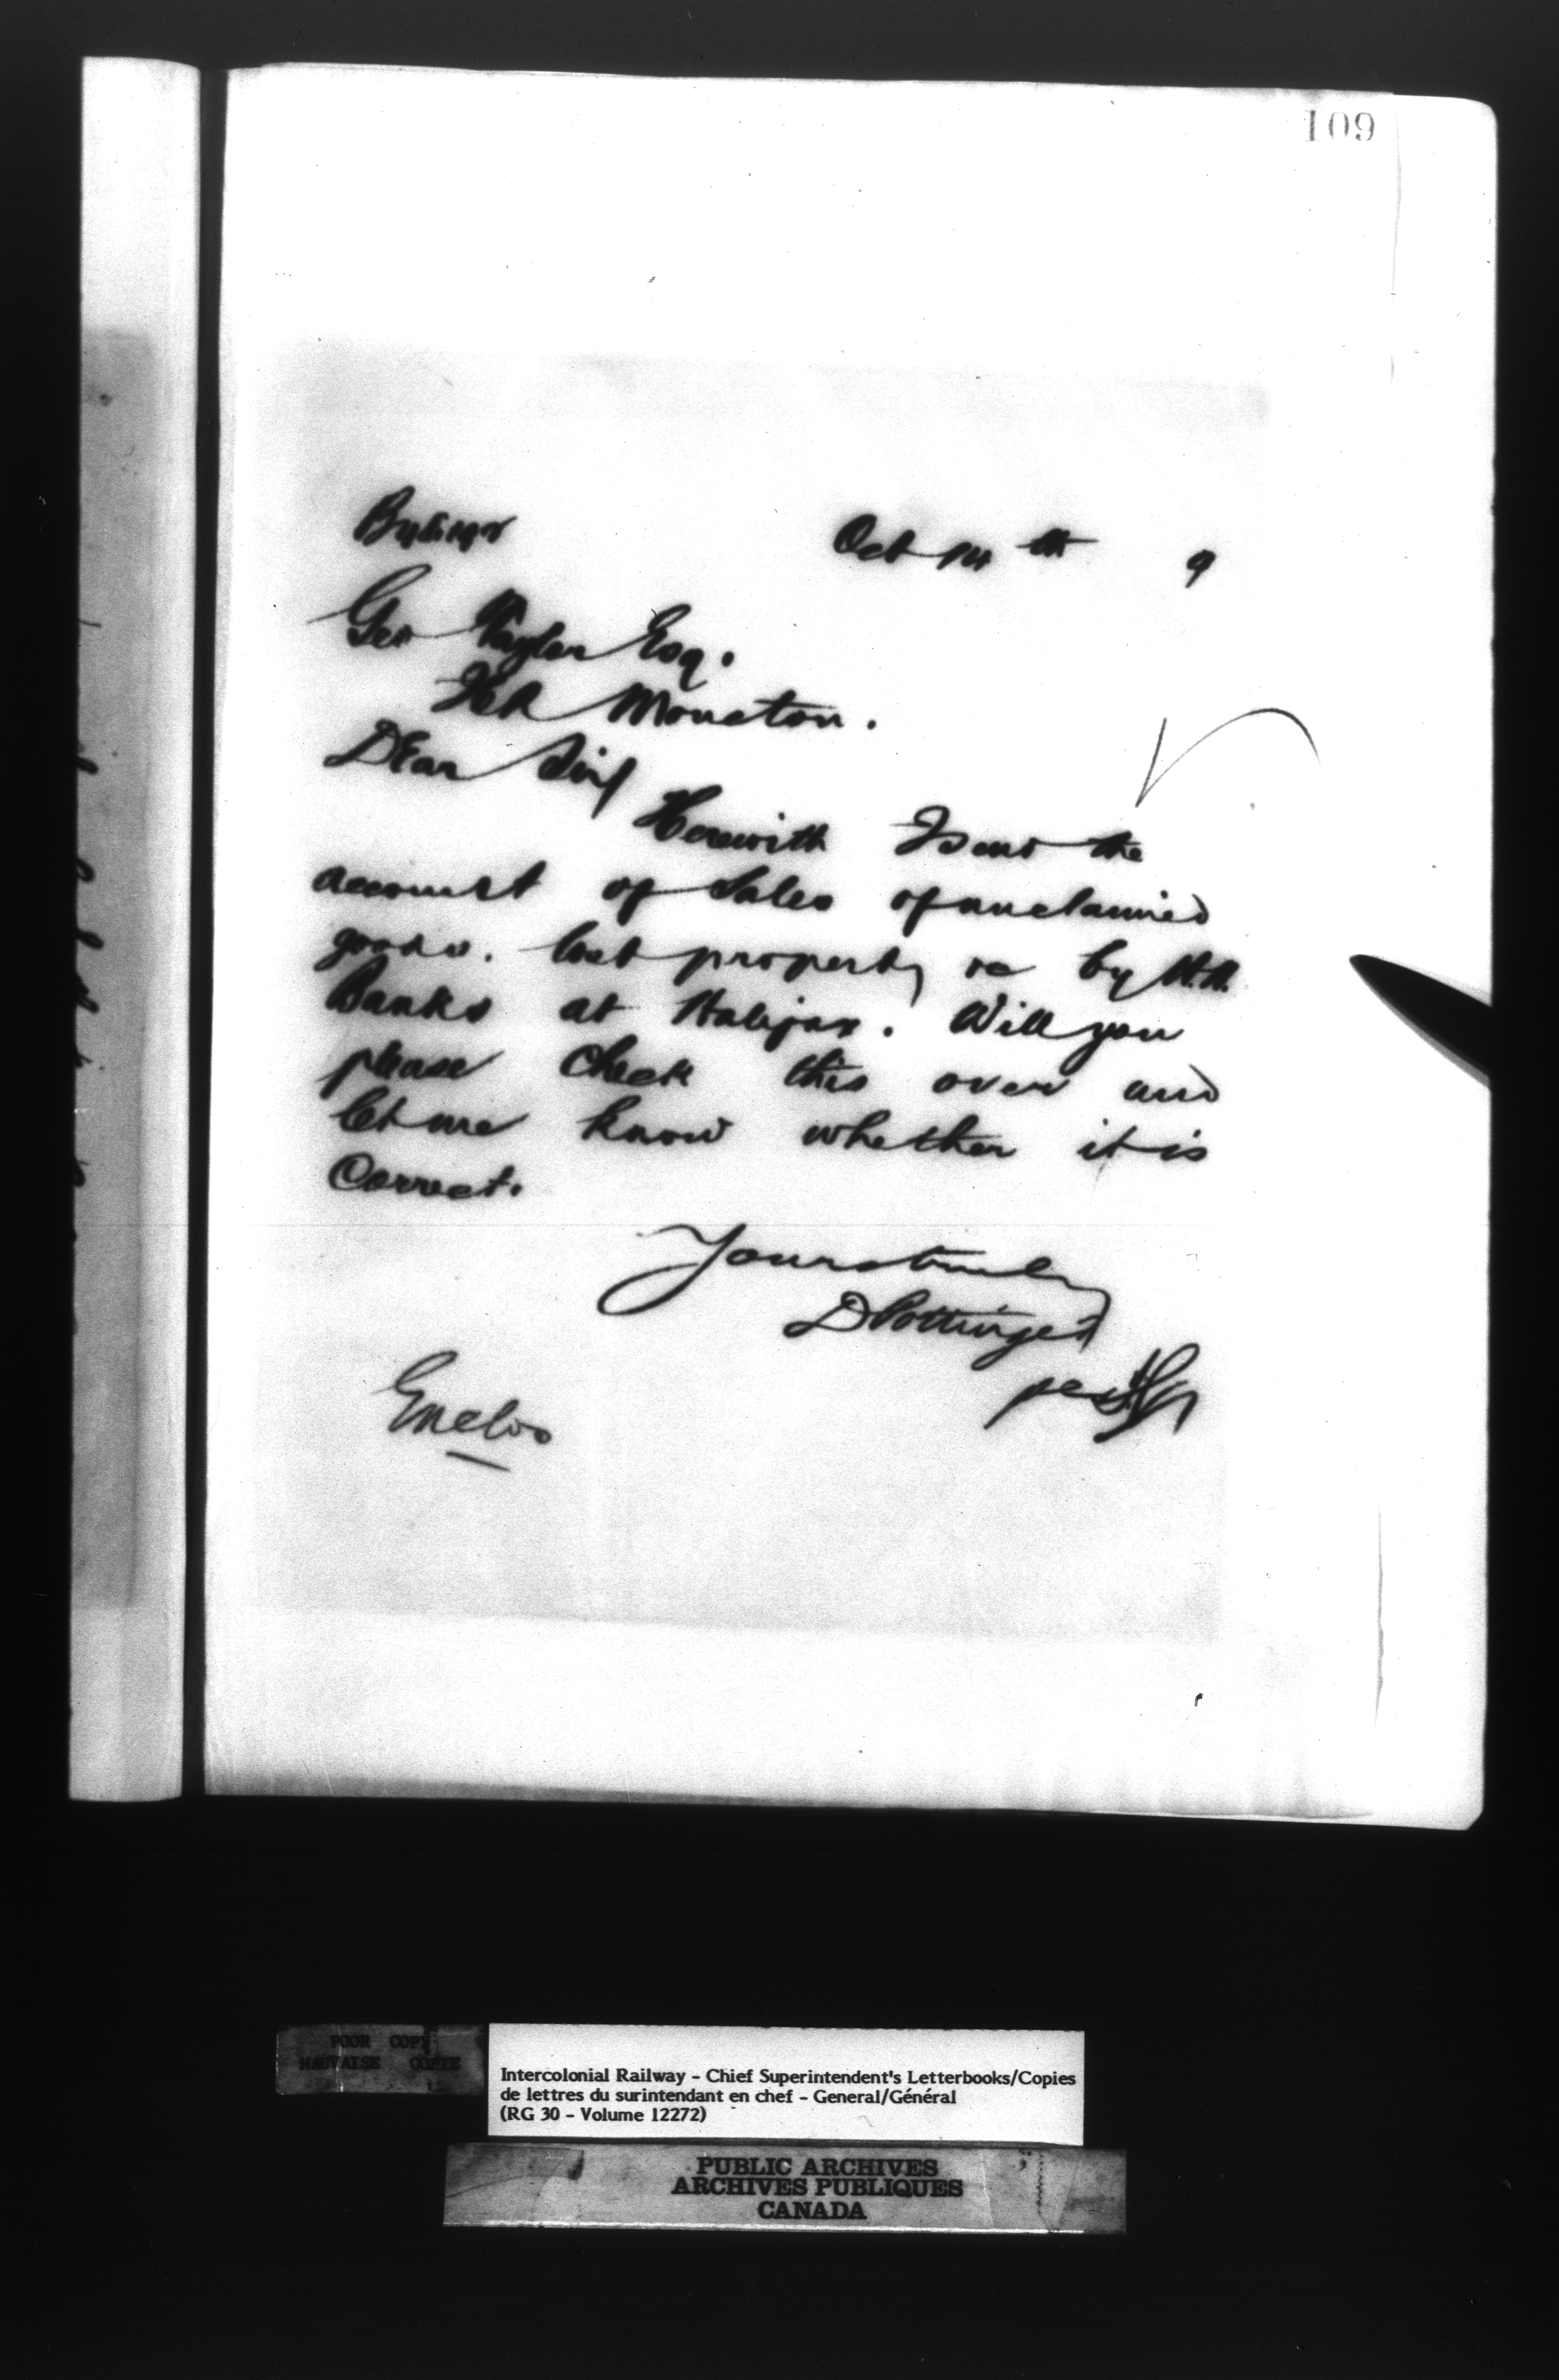 109
Oct 14th 9
Geo Taylor Esq.
Moncton.
Dear Sir
Herewith I send the
account of Sales of unclaimed
goods. lost property &c by W.N.
Banks at Halifax. Will you
please check this over and
let me know whether it is
Correct.
Yours truly
D Pottinger
per
Enclos
POOR COPY
MAUVAISE COPIE
Intercolonial Railway - Chief Superintendent's Letterbooks/Copies
de lettres du surintendant en chef - General/Général
(RG 30 - Volume 12272)
PUBLIC ARCHIVES
ARCHIVES PUBLIQUES
CANADA